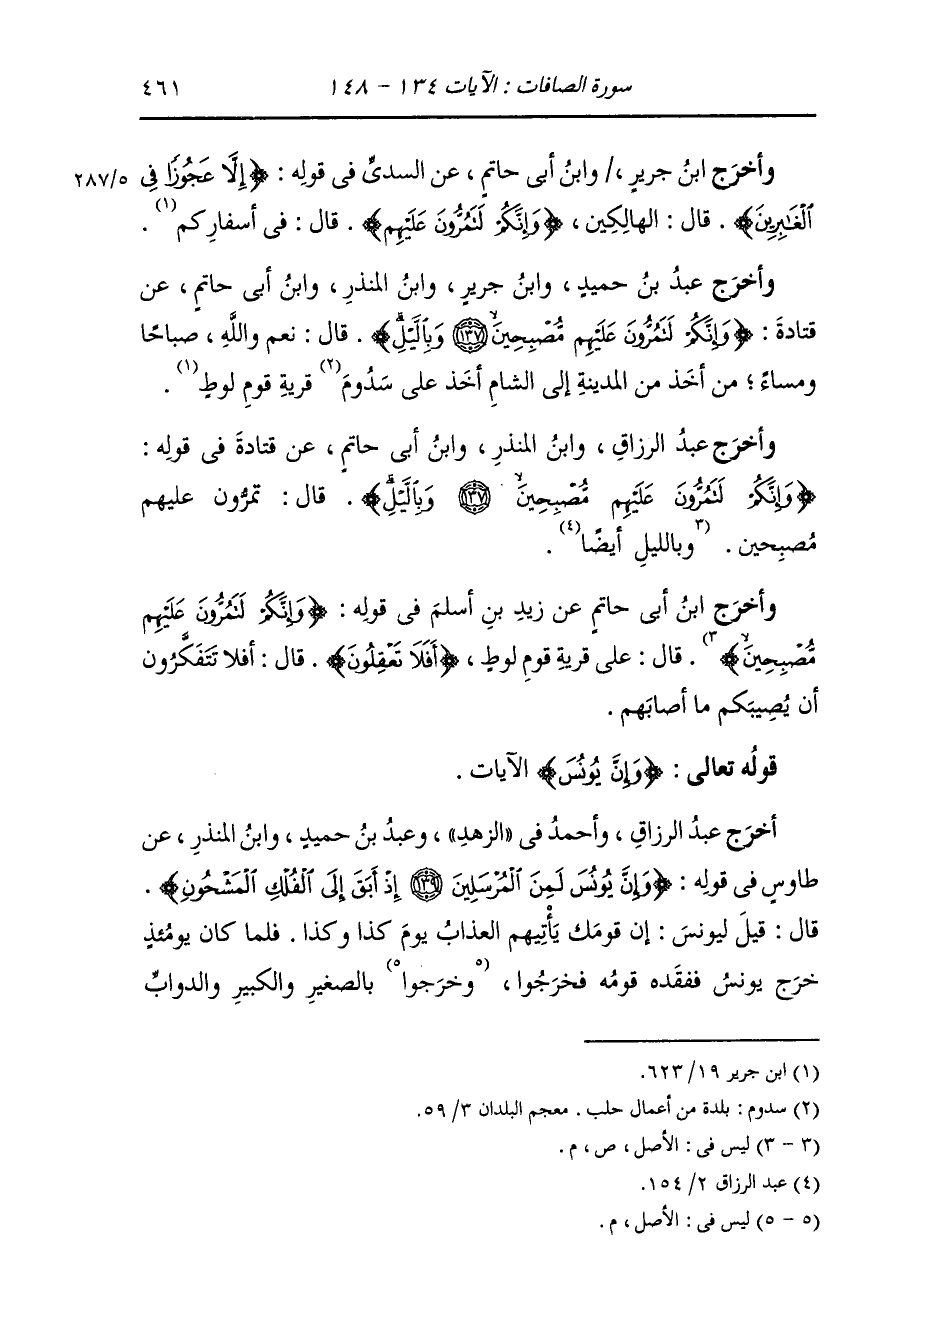 سورة الصافات : الآيات ١٣٤ - ١٤٨ ٤٦١
وأخرَج ابنُ جريرٍ ،/ وابنُ أبى حاتمٍ ، عن السدىِّ فى قولِه : ﴿إِلَّا عَجُوزًا فِى ٢٨٧/٥
ٱلْغَٰبِرِينَ﴾ . قال : الهالِكِين ، ﴿وَإِنَّكُمْ لَتَمُرُّونَ عَلَيْهِم﴾ . قال : فى أسفارِكم(١) .
وأخرَج عبدُ بنُ حميدٍ ، وابنُ جريرٍ ، وابنُ المنذرِ ، وابنُ أبى حاتمٍ ، عن
قتادةَ : ﴿وَإِنَّكُمْ لَتَمُرُّونَ عَلَيْهِم مُّصْبِحِينَۙ ١٣٧ وَبِٱلَّيْلِۗ﴾ . قال : نعم واللَّهِ ، صباحًا
ومساءً ؛ من أخَذ من المدينةِ إلى الشامِ أخَذ على سَدُومَ(٢) قريةِ قومِ لوطٍ(١) .
وأخرَج عبدُ الرزاقِ ، وابنُ المنذرِ ، وابنُ أبى حاتمٍ ، عن قتادةَ فى قولِه :
﴿وَإِنَّكُمْ لَتَمُرُّونَ عَلَيْهِم مُّصْبِحِينَۙ ١٣٧ وَبِٱلَّيْلِۗ﴾ . قال : تمرُّون عليهم
مُصبِحين . (٣وبالليلِ أيضًا(٤) .
وأخرَج ابنُ أبى حاتمٍ عن زيدِ بنِ أسلمَ فى قولِه : ﴿وَإِنَّكُمْ لَتَمُرُّونَ عَلَيْهِم
مُّصْبِحِينَۙ﴾٣) . قال : على قريةِ قومِ لوطٍ ، ﴿أَفَلَا تَعْقِلُونَ﴾ . قال : أفلا تَتَفَكَّرُون
أن يُصِيبَكم ما أصابَهم .
قولُه تعالى : ﴿وَإِنَّ يُونُسَ﴾ الآيات .
أخرَج عبدُ الرزاقِ ، وأحمدُ فى «الزهدِ» ، وعبدُ بنُ حميدٍ ، وابنُ المنذرِ ، عن
طاوسٍ فى قولِه : ﴿وَإِنَّ يُونُسَ لَمِنَ ٱلْمُرْسَلِينَ ١٣٩ إِذْ أَبَقَ إِلَى ٱلْفُلْكِ ٱلْمَشْحُونِ﴾ .
قال : قيلَ ليونسَ : إن قومَك يَأْتِيهم العذابُ يومَ كذا وكذا . فلما كان يومُئذٍ
خرَج يونسُ ففقَده قومُه فخرَجُوا ، (٥وخرَجوا٥) بالصغيرِ والكبيرِ والدوابِّ
(١) ابن جرير ١٩/ ٦٢٣.
(٢) سدوم : بلدة من أعمال حلب . معجم البلدان ٣/ ٥٩.
(٣ - ٣) ليس فى : الأصل ، ص ، م .
(٤) عبد الرزاق ٢/ ١٥٤.
(٥ - ٥) ليس فى : الأصل ، م .